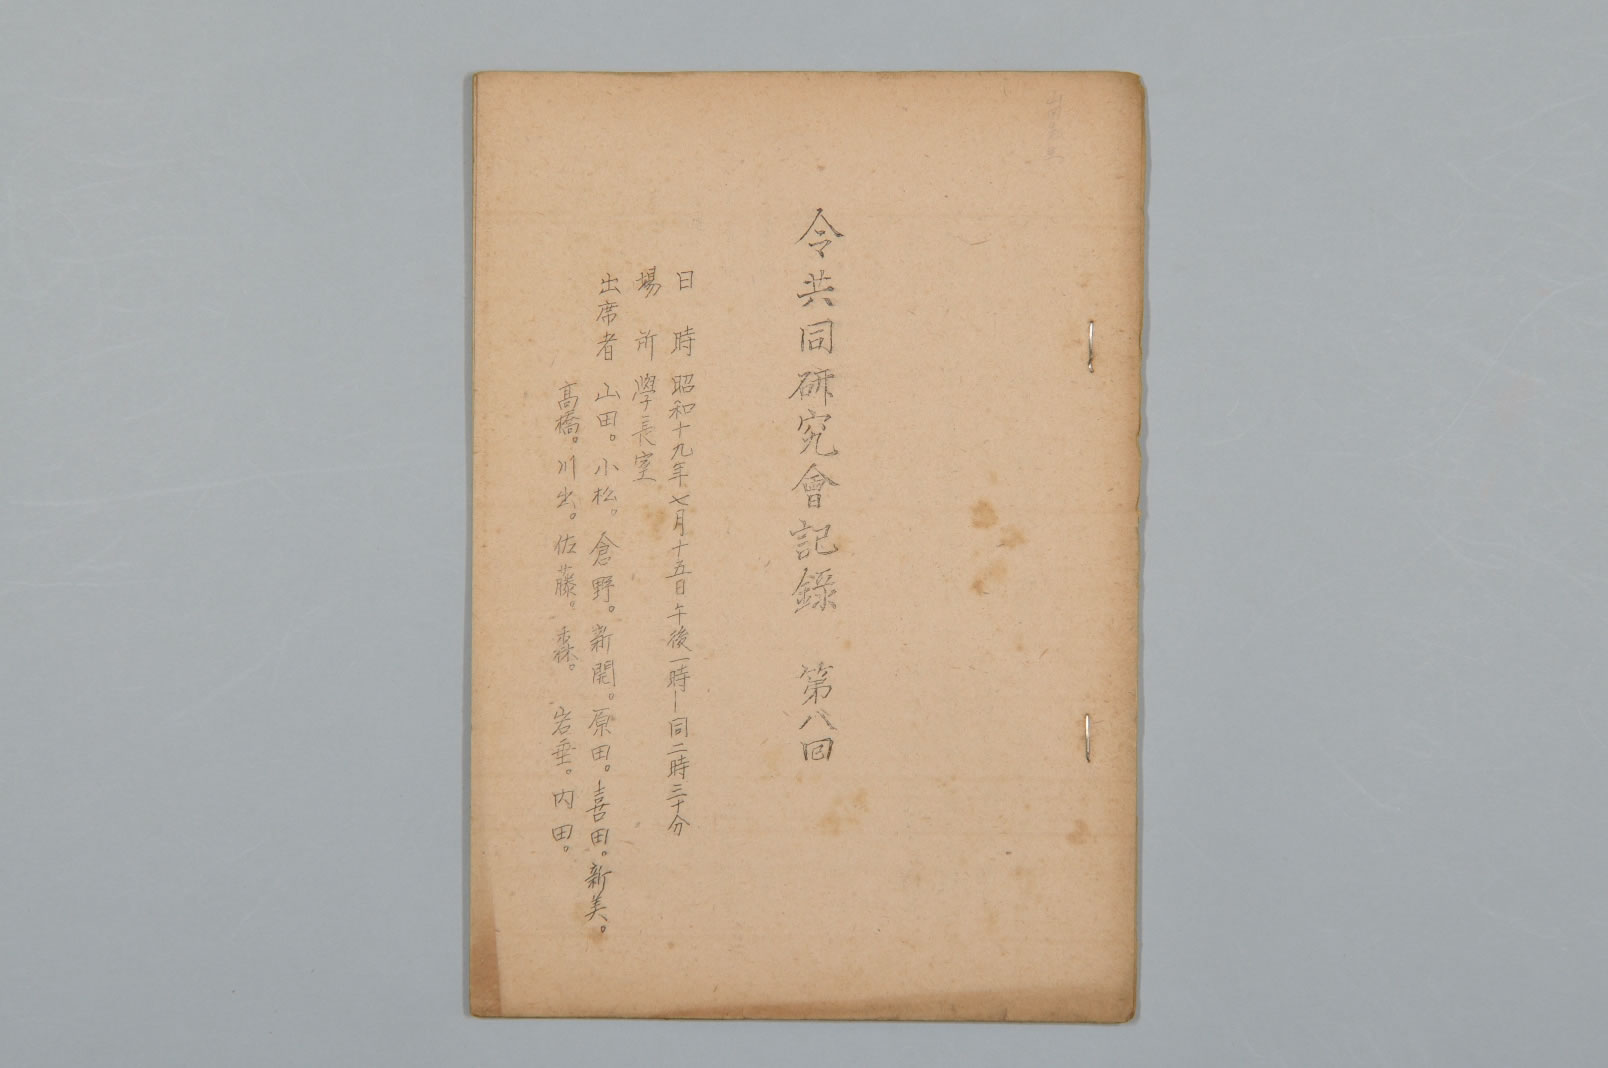 令共同研究會記錄　第八回
日　時　昭和十九年七月十五日午後一時―同二時三十分
場　所　學長室
出席者　山田。小松。倉野。新開。原田。喜田。新美。
高橋。川出。佐藤。森。岩垂。内田。